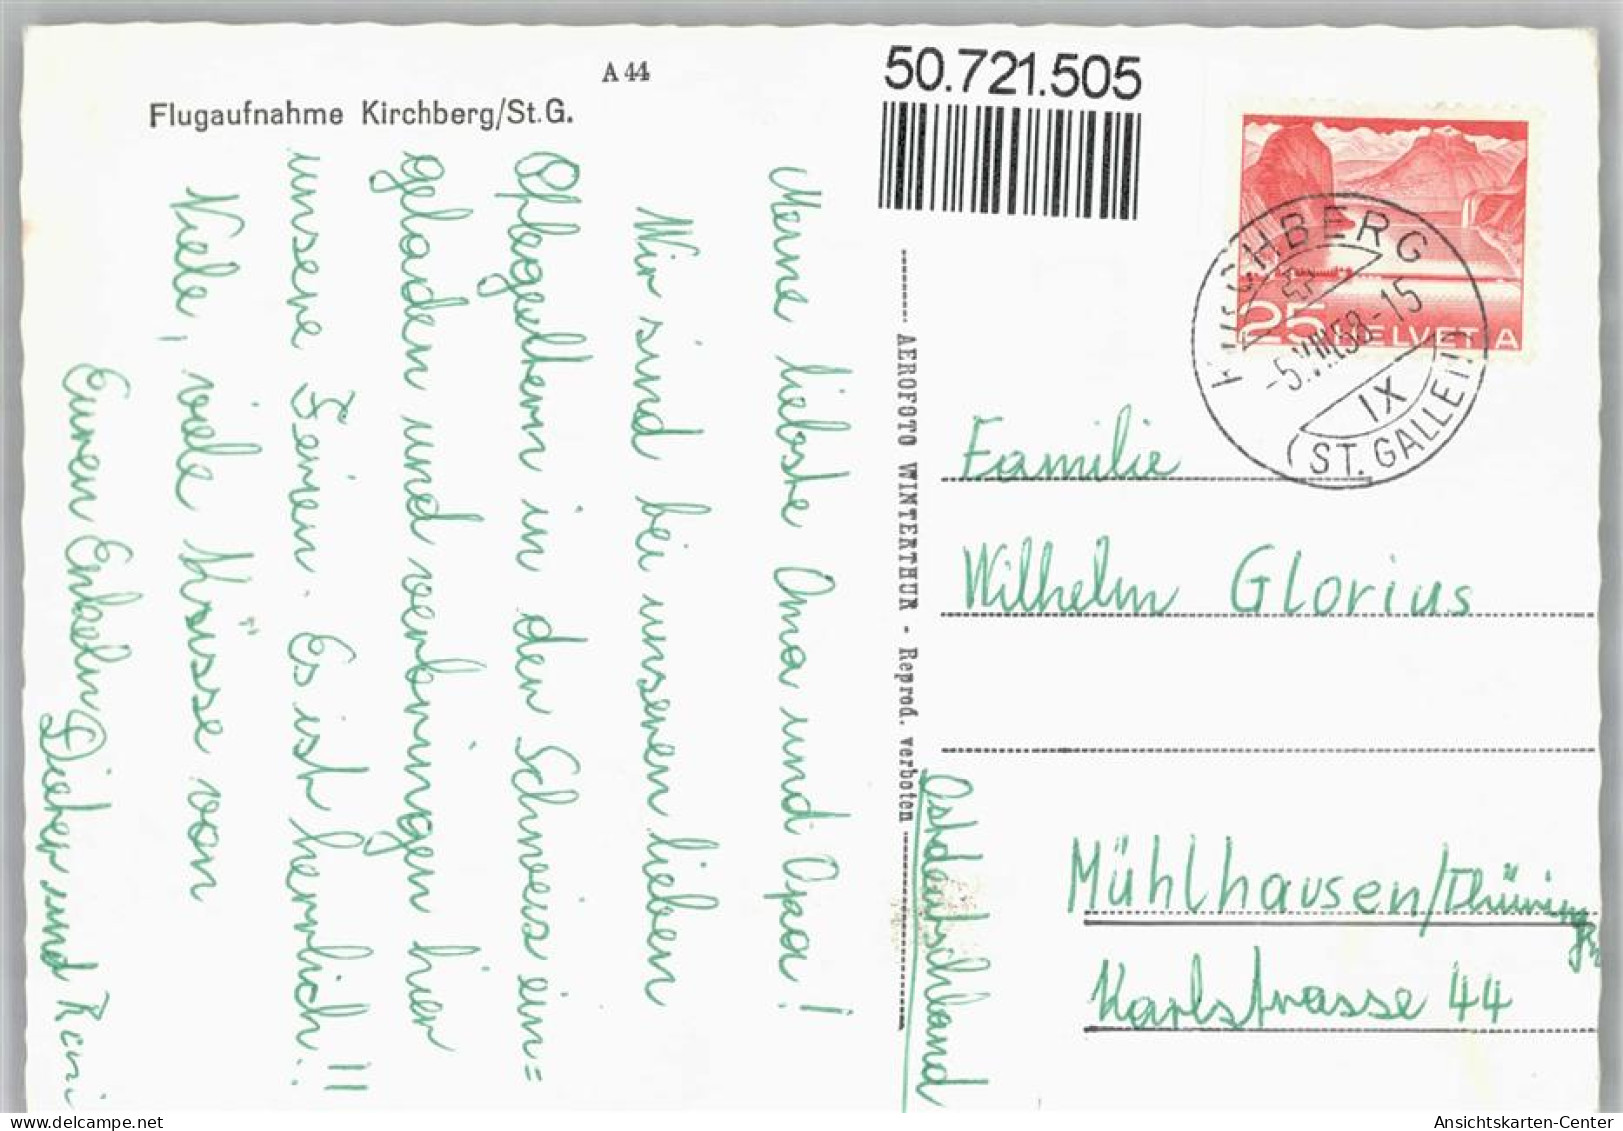 A 44
Flugaufnahme Kirchberg/St.G.
50.721.505
Meine liebste Oma und Opa!
Wir sind bei unseren lieben
Pflegeltern in der Schweis ein=
geladen und verbringen hier
unsere Ferien. Es ist herrlich!!
Viele, viele Küsse von
Euren Enkeln
Dieter und Reni
AEROFOTO WINTERTHUR - Reprod. verboten
25 HELVETIA
KIRCHBERG
-5.VIII.58-15
IX
(ST. GALLEN)
Familie
Wilhelm Glorius
Mühlhausen/Thüringen
Karlstrasse 44
Ostdeutschland
delcampe.net
Ansichtskarten-Center